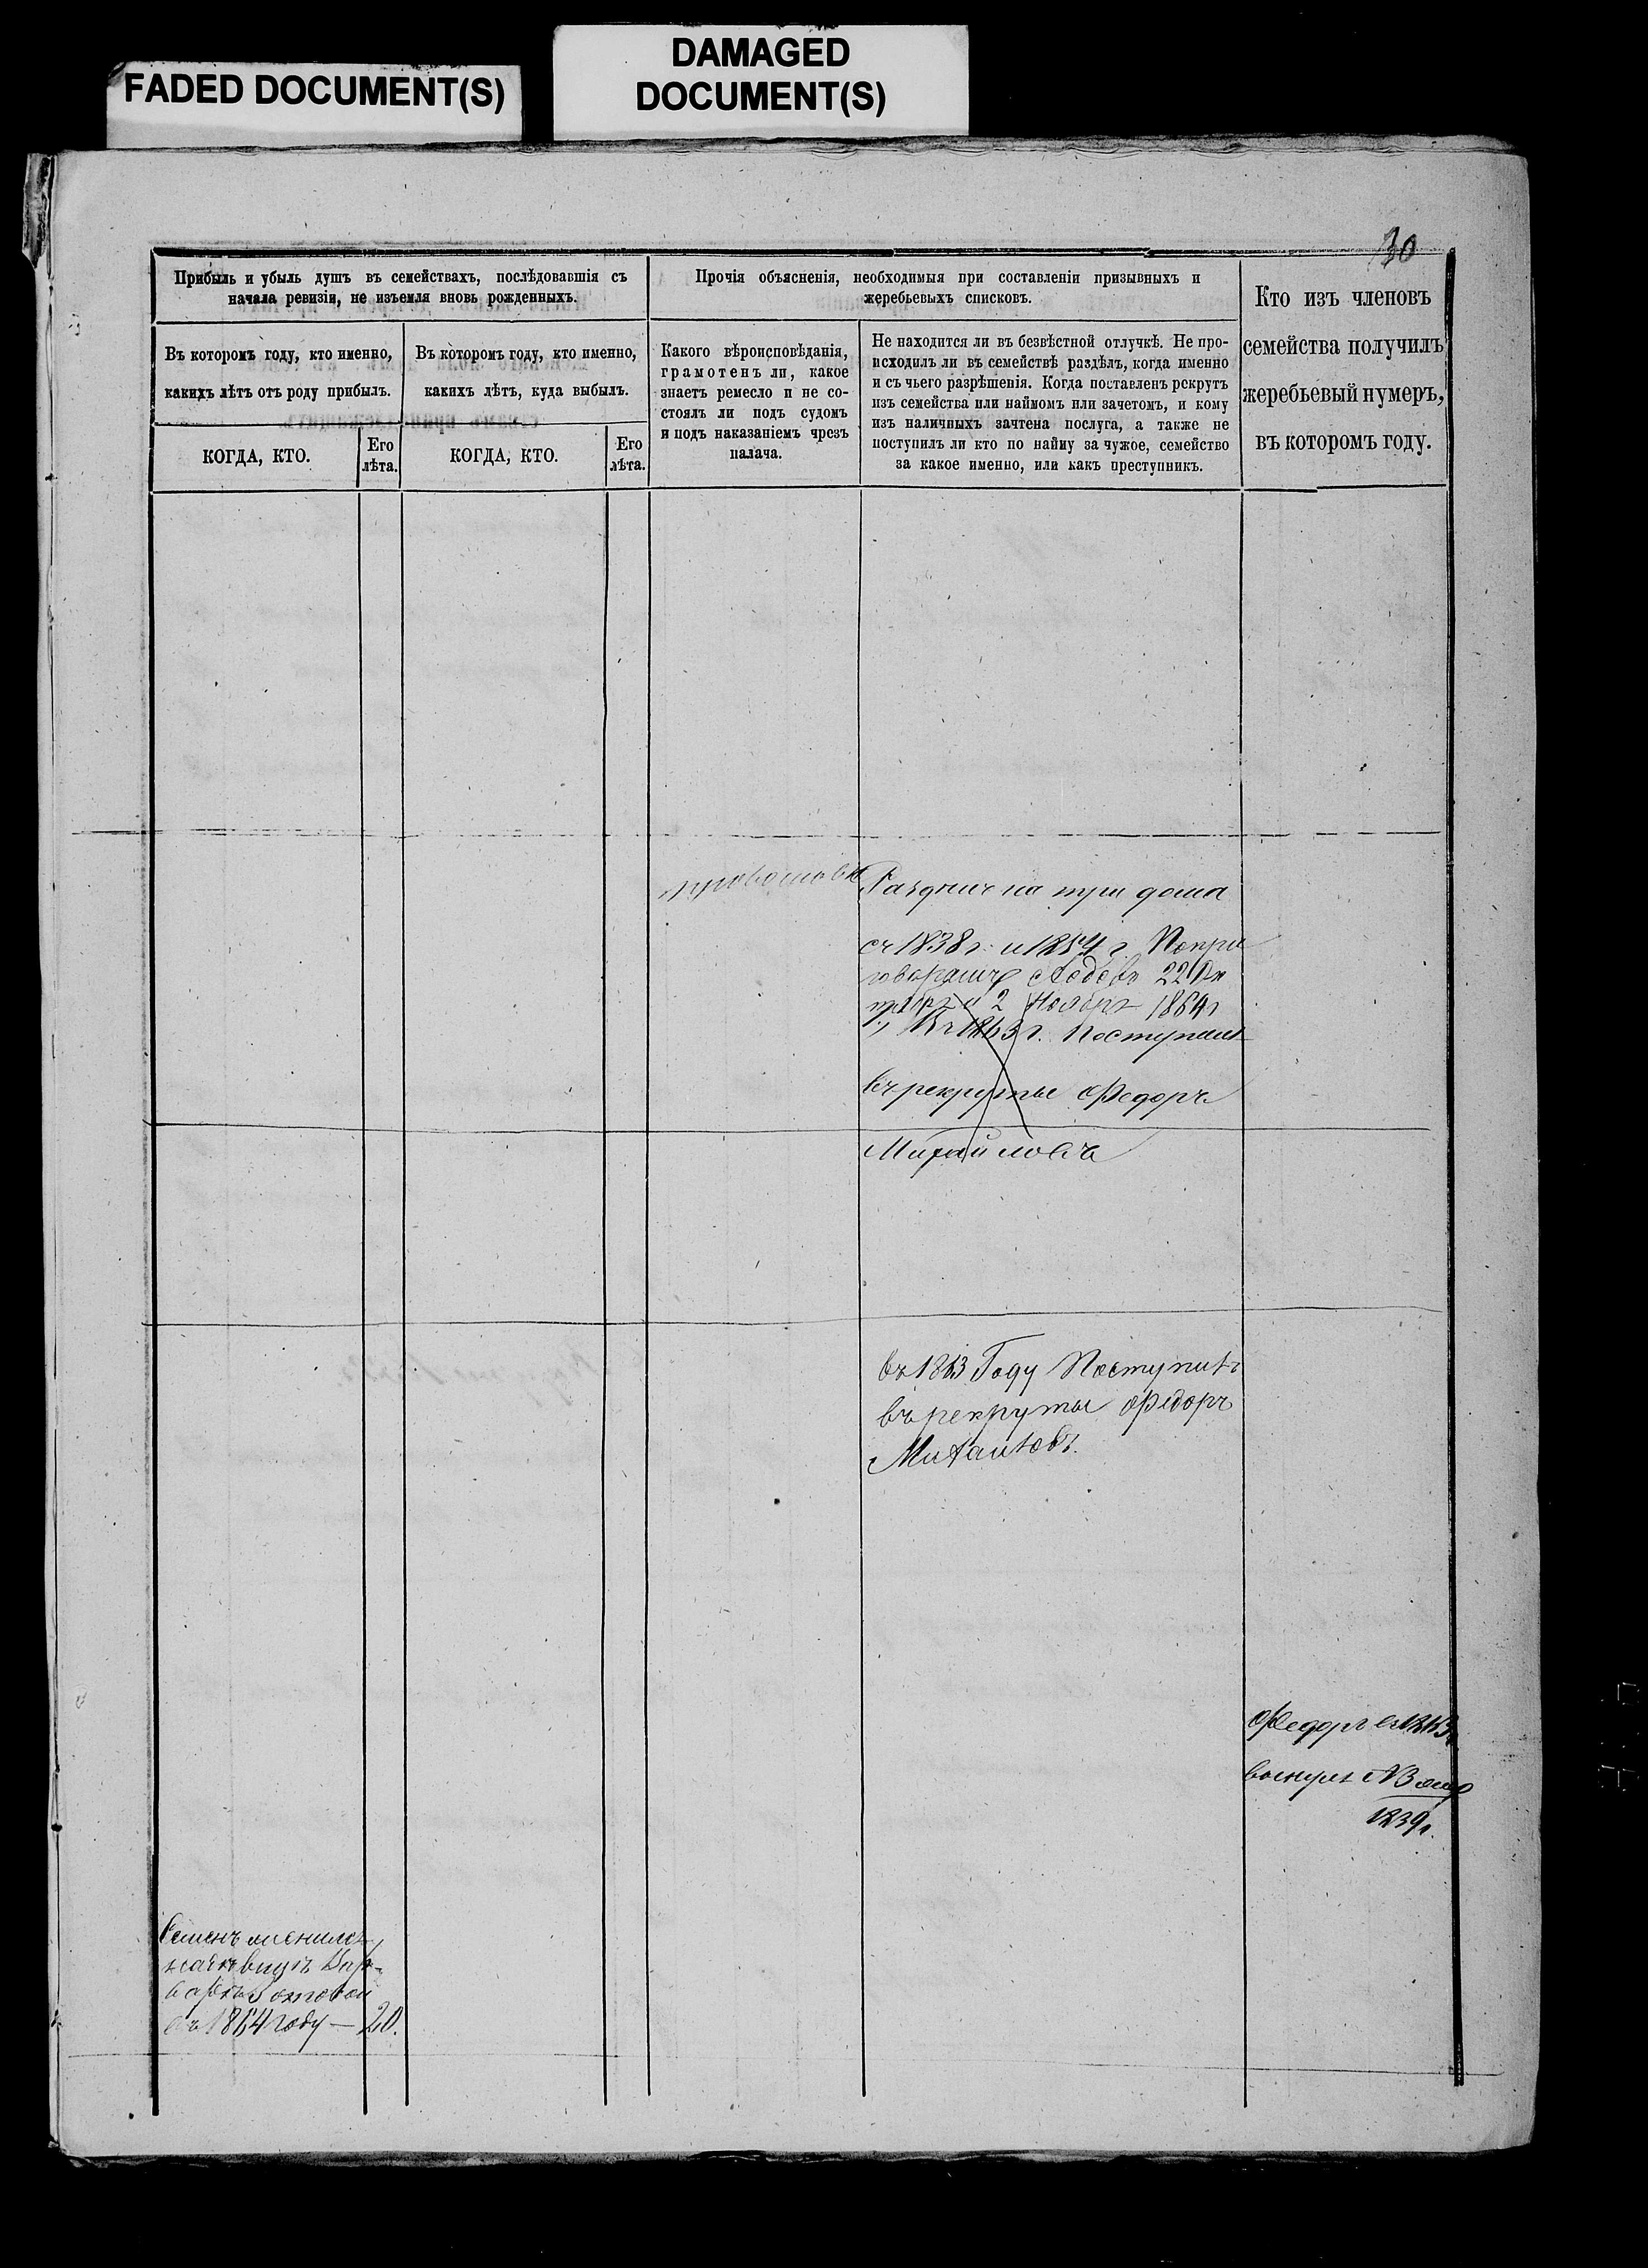 FADED DOCUMENT(S)
DAMAGED
DOCUMENT(S)
30
Прибыль и убыль душъ въ семействахъ, послѣдовавшія съ
начала ревизіи, не изъемля вновь рожденныхъ.
Въ которомъ году, кто именно,
какихъ лѣтъ отъ роду прибылъ.
КОГДА, КТО.
Его
лѣта.
Въ которомъ году, кто именно,
какихъ лѣтъ, куда выбылъ.
КОГДА, КТО.
Его
лѣта.
Прочія объясненія, необходимыя при составленіи призывныхъ и
жеребьевыхъ списковъ.
Какого вѣроисповѣданія,
грамотенъ ли, какое
знаетъ ремесло и не со-
стоялъ ли подъ судомъ
и подъ наказаніемъ чрезъ
палача.
Не находится ли въ безвѣстной отлучкѣ. Не про-
исходилъ ли въ семействѣ раздѣлъ, когда именно
и съ чьего разрѣшенія. Когда поставленъ рекрутъ
изъ семейства или наймомъ или зачетомъ, и кому
изъ наличныхъ зачтена послуга, а также не
поступилъ ли кто по найму за чужое, семейство
за какое именно, или какъ преступникъ.
Кто изъ членовъ
семейства получилъ
жеребьевый нумеръ,
въ которомъ году.
на три дома
съ 1838 г. и 1854 г.
22
2 Ноября 1864 г
Въ 1863 г. Поступилъ
въ рекруты Федоръ
Михайловъ
въ 1863 Году Поступилъ
въ рекруты Федоръ
Михаиловъ.
Федоръ въ 1863
вынулъ №
1839 г.
Семенъ
въ 1864 году — 20.